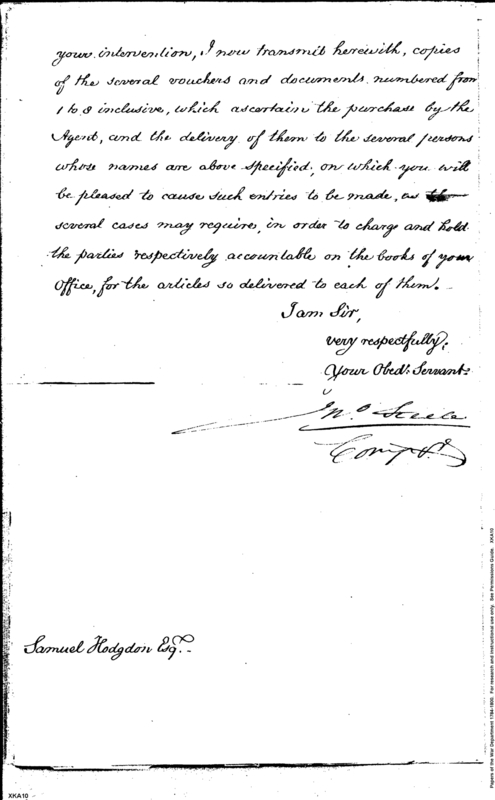 your intervention, I now transmit herewith, copies
of the several vouchers and documents numbered from
1 to 8 inclusive, which ascertain the purchase by the
Agent, and the delivery of them to the several persons
whose names are above specified, on which you will
be pleased to cause such entries to be made, as the
several cases may require, in order to charge and hold
the parties respectively accountable on the books of your
Office, for the articles so delivered to each of them.
I am Sir,
very respectfully,
Your Obed.t Servant.
Jn.o Steele
Compt.r
Samuel Hodgdon Esq.r
Papers of the War Department 1784-1800. For research and instructional use only. See Permissions Guide. XKA10
XKA10